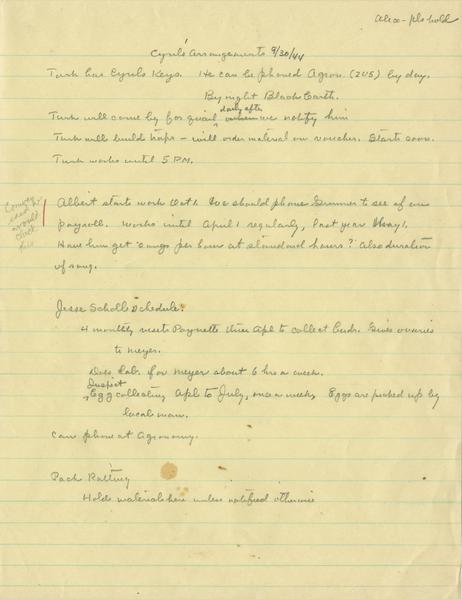 Alice - pls hold
Cyril's Arrangements 9/30/44
Turk has Cyril's Keys. He can be phoned Agron. (245) by day.
By night Black Earth.
daily after
Turk will come by for quail when we notify him
Turk will build traps - will order material on voucher. Starts soon.
Turk works until 5 P.M.
Albert starts work Oct 1. We should phone to see if on
payroll. Works until April 1 regularly, last year May 1.
Have him get songs per hour at standard hours? Also duration
of song.
Jesse Scholl's schedule:
4 monthly visits Poynette thru Apl to collect Gives ovaries
to Meyer.
Does lab. for Meyer about 6 hrs a week.
Inspect
Egg collecting Apl to July, once a week. Eggs are picked up by
local man.
Can phone at Agronomy.
Pack
Holds materials here unless notified otherwise